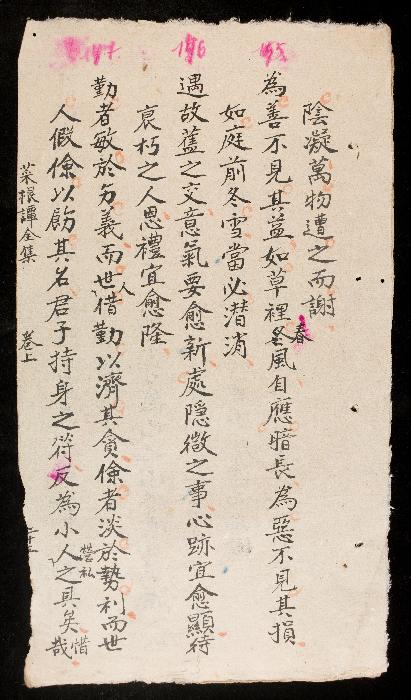 195 196 197
陰凝萬物遭之而謝
為善不見其益如草裡冬風自應暗長為惡不見其損
春
如庭前冬雪當必潛消
遇故舊之交意氣要愈新處隱微之事心跡宜愈顯待
衰朽之人恩禮宜愈隆
勤者敏於義而世人借勤以濟其貪儉者淡於勢利而世
人假儉以飭其名君子持身之符反為小人營私之具矣惜哉
菜根譚全集 卷上